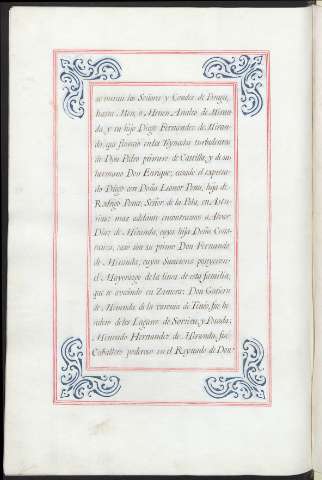 se vieran los Señores y Condes de Braga,
hasta Men, ò Menen Analso de Miran
da y su hijo Diego Fernandez de Miran
da que florecio en los Reynados turbulentos
de Don Pedro primero de Castilla, y de su
hermano Don Enrique; casado el expresa
do Diego con Doña Leonor Ponze, hija de
Rodrigo Ponze, Señor de la Pola, en Astu
rias: mas adelante encontramos a Alvar
Diaz de Miranda, cuya hija Doña Cons
tanza, casó con su primo Don Fernando
de Miranda, cuyos Sucesores poseyeron
el Mayorazgo de la linea de esta familia,
que se avecindó en Zamora: Don Gutierre
de Miranda de la varonia de Tineo, fue he
redero de los Lugares de y Posada;
Menendo Hernandez de Miranda, fue
Caballero poderoso en el Reynado de Don